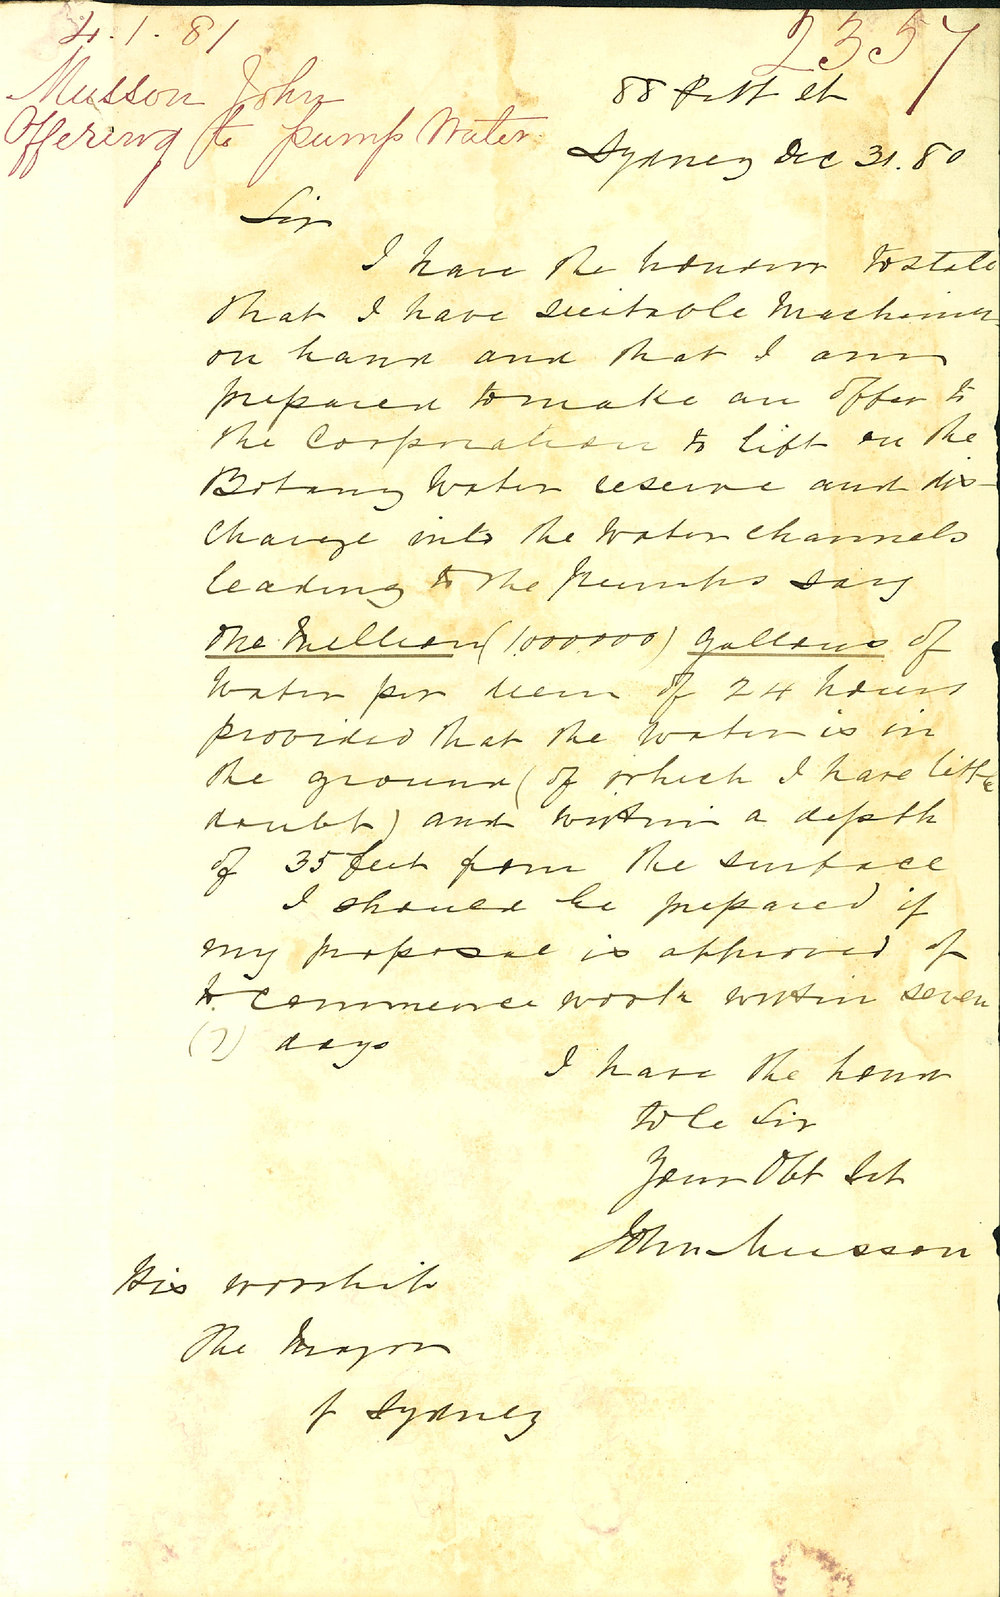 4.1.81
2357
Musson John
Offering to pump Water
88 Pitt St
Sydney Dec 31.80
Sir
I have the honour to state
that I have suitable Machinery
on hand and that I am
prepared to make an offer to
the Corporation to lift on the
Botany Water reserve and dis-
charge into the Water channels
leading to the Pumps say
One Million (1000000) gallons of
Water per diem of 24 hours
provided that the Water is in
the ground (of which I have little
doubt) and within a depth
of 35 feet from the surface
I should be prepared if
my proposal is approved of
to commence work within seven
(7) days
I have the honor
to be Sir
Your Obt Svt
John Musson
His worship
The Mayor
of Sydney